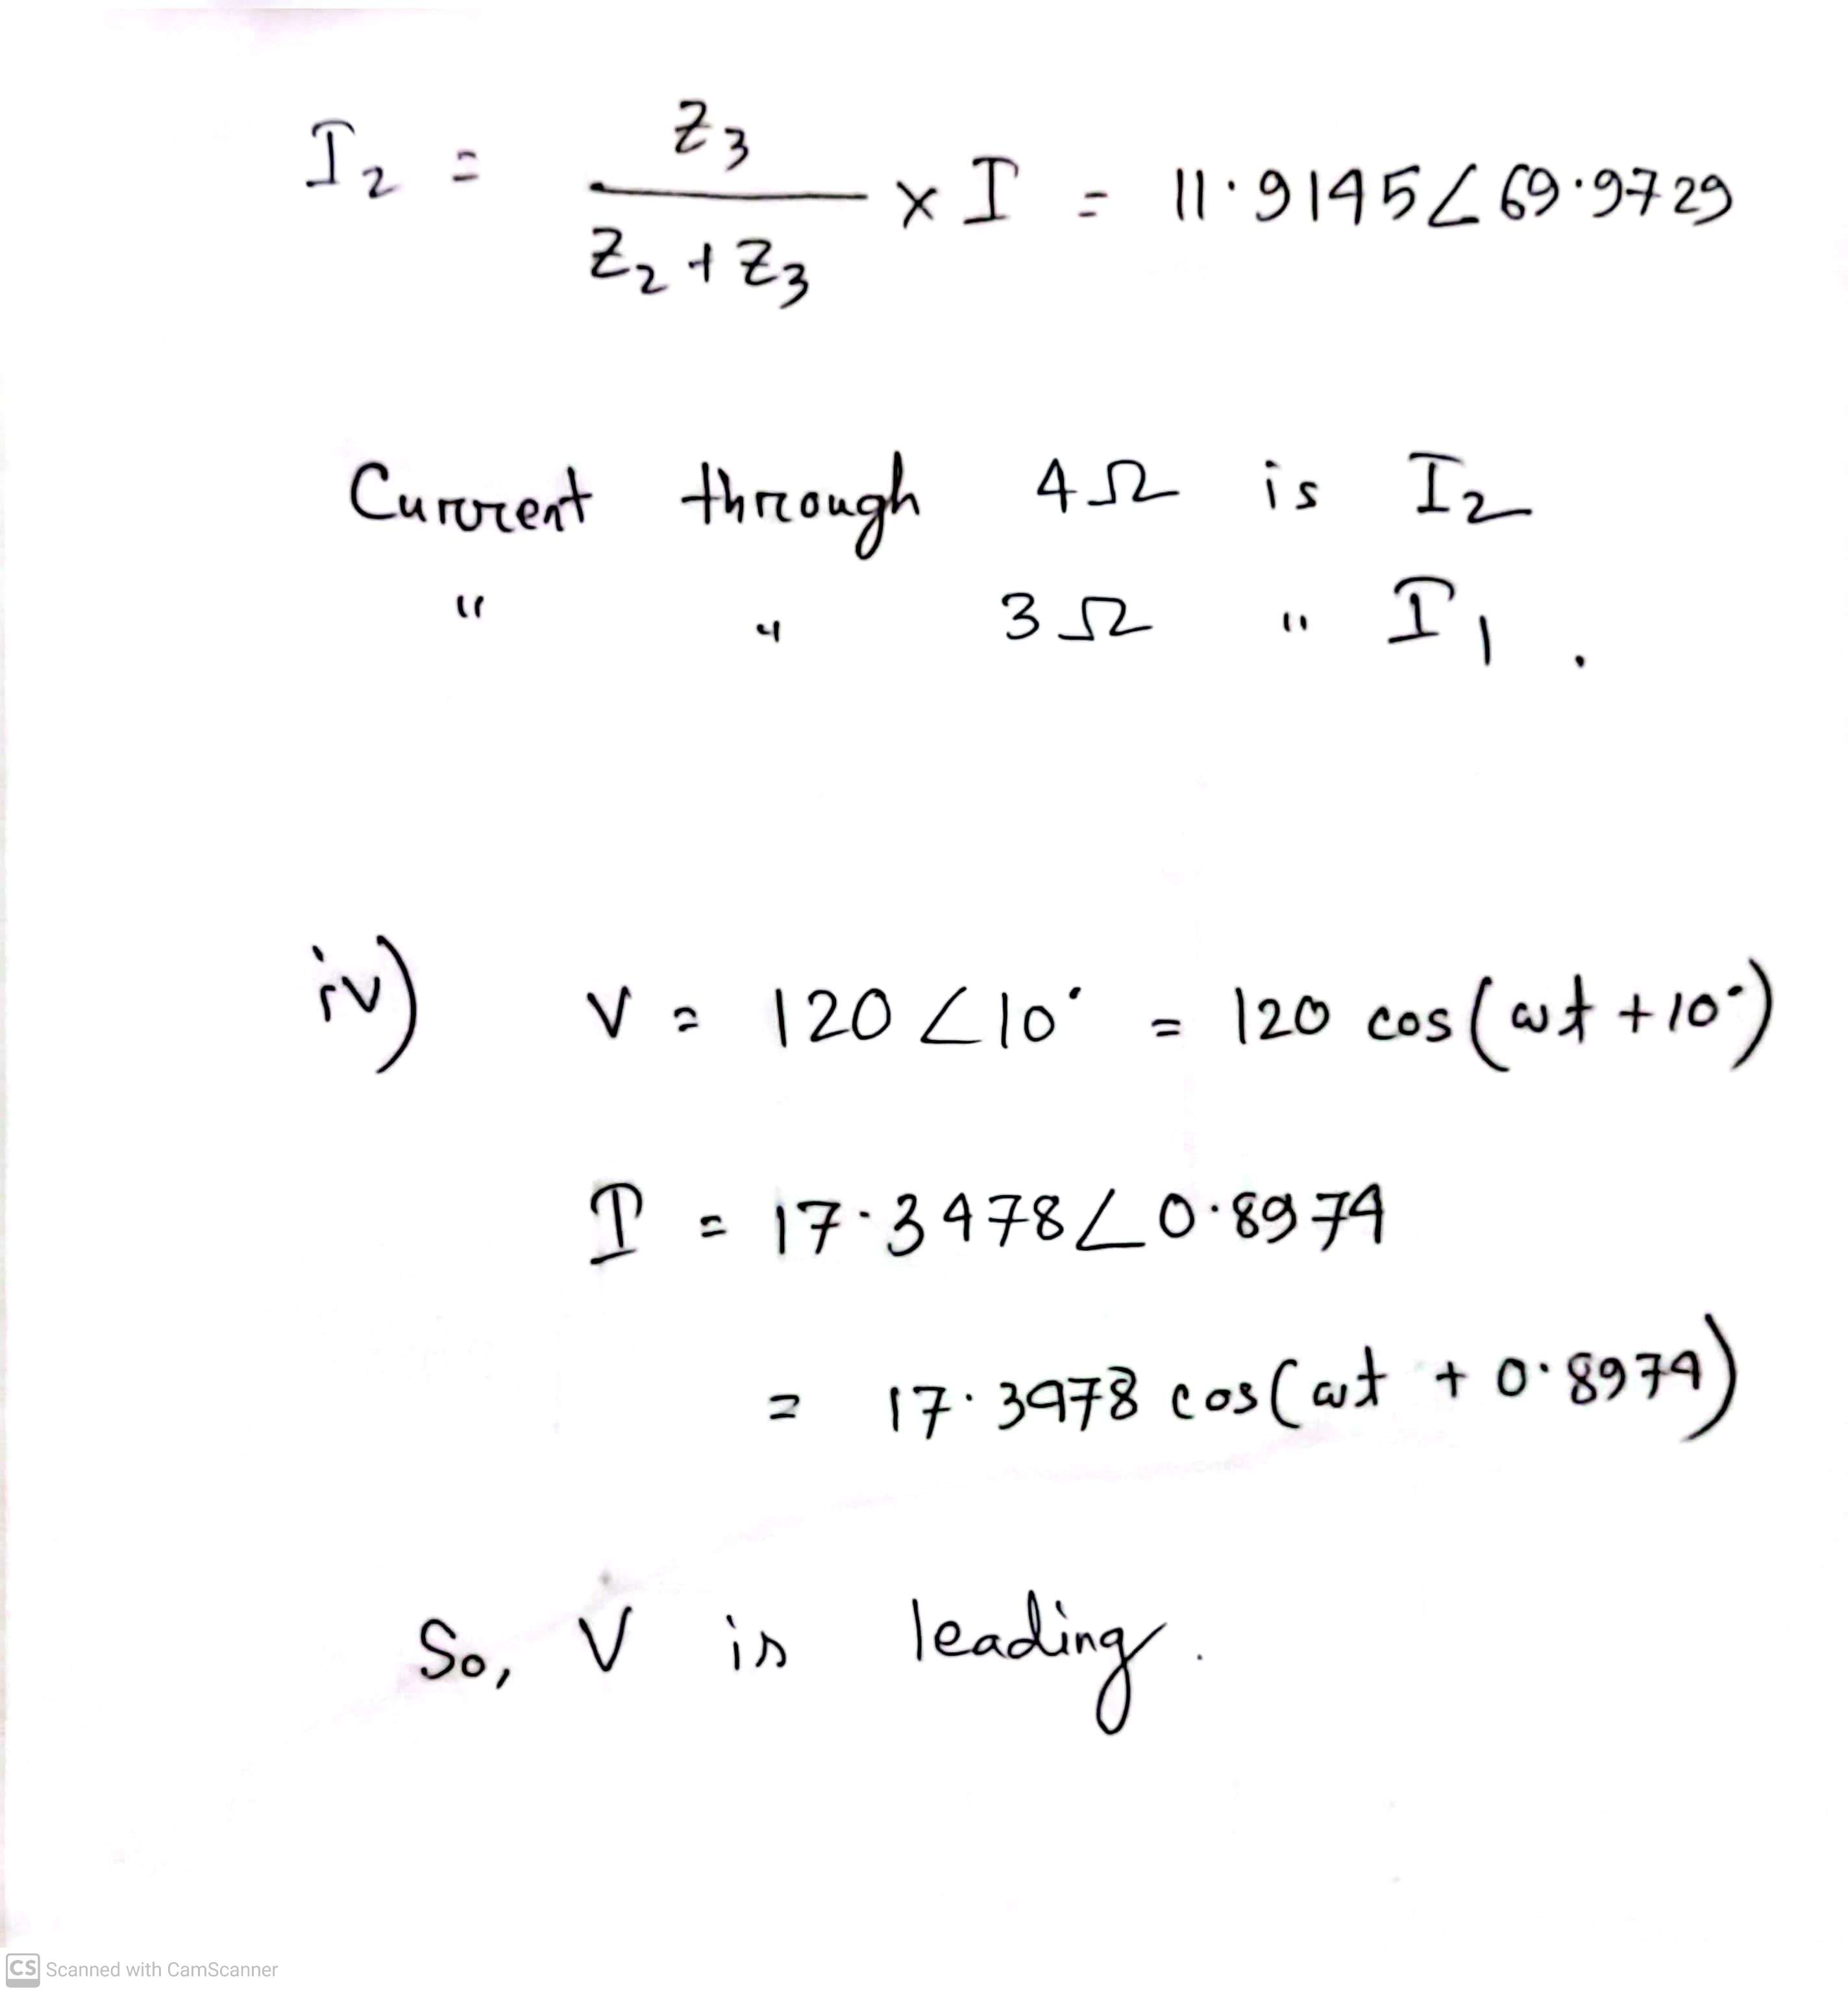 I₂ = Z₃ / (Z₂ + Z₃) × I = 11.9145∠69.9729
Current through 4Ω is I₂
" " 3Ω " I₁ .
iv) V = 120∠10° = 120 cos(ωt + 10°)
I = 17.3478∠0.8974
= 17.3478 cos(ωt + 0.8974)
So, V is leading.
CS Scanned with CamScanner